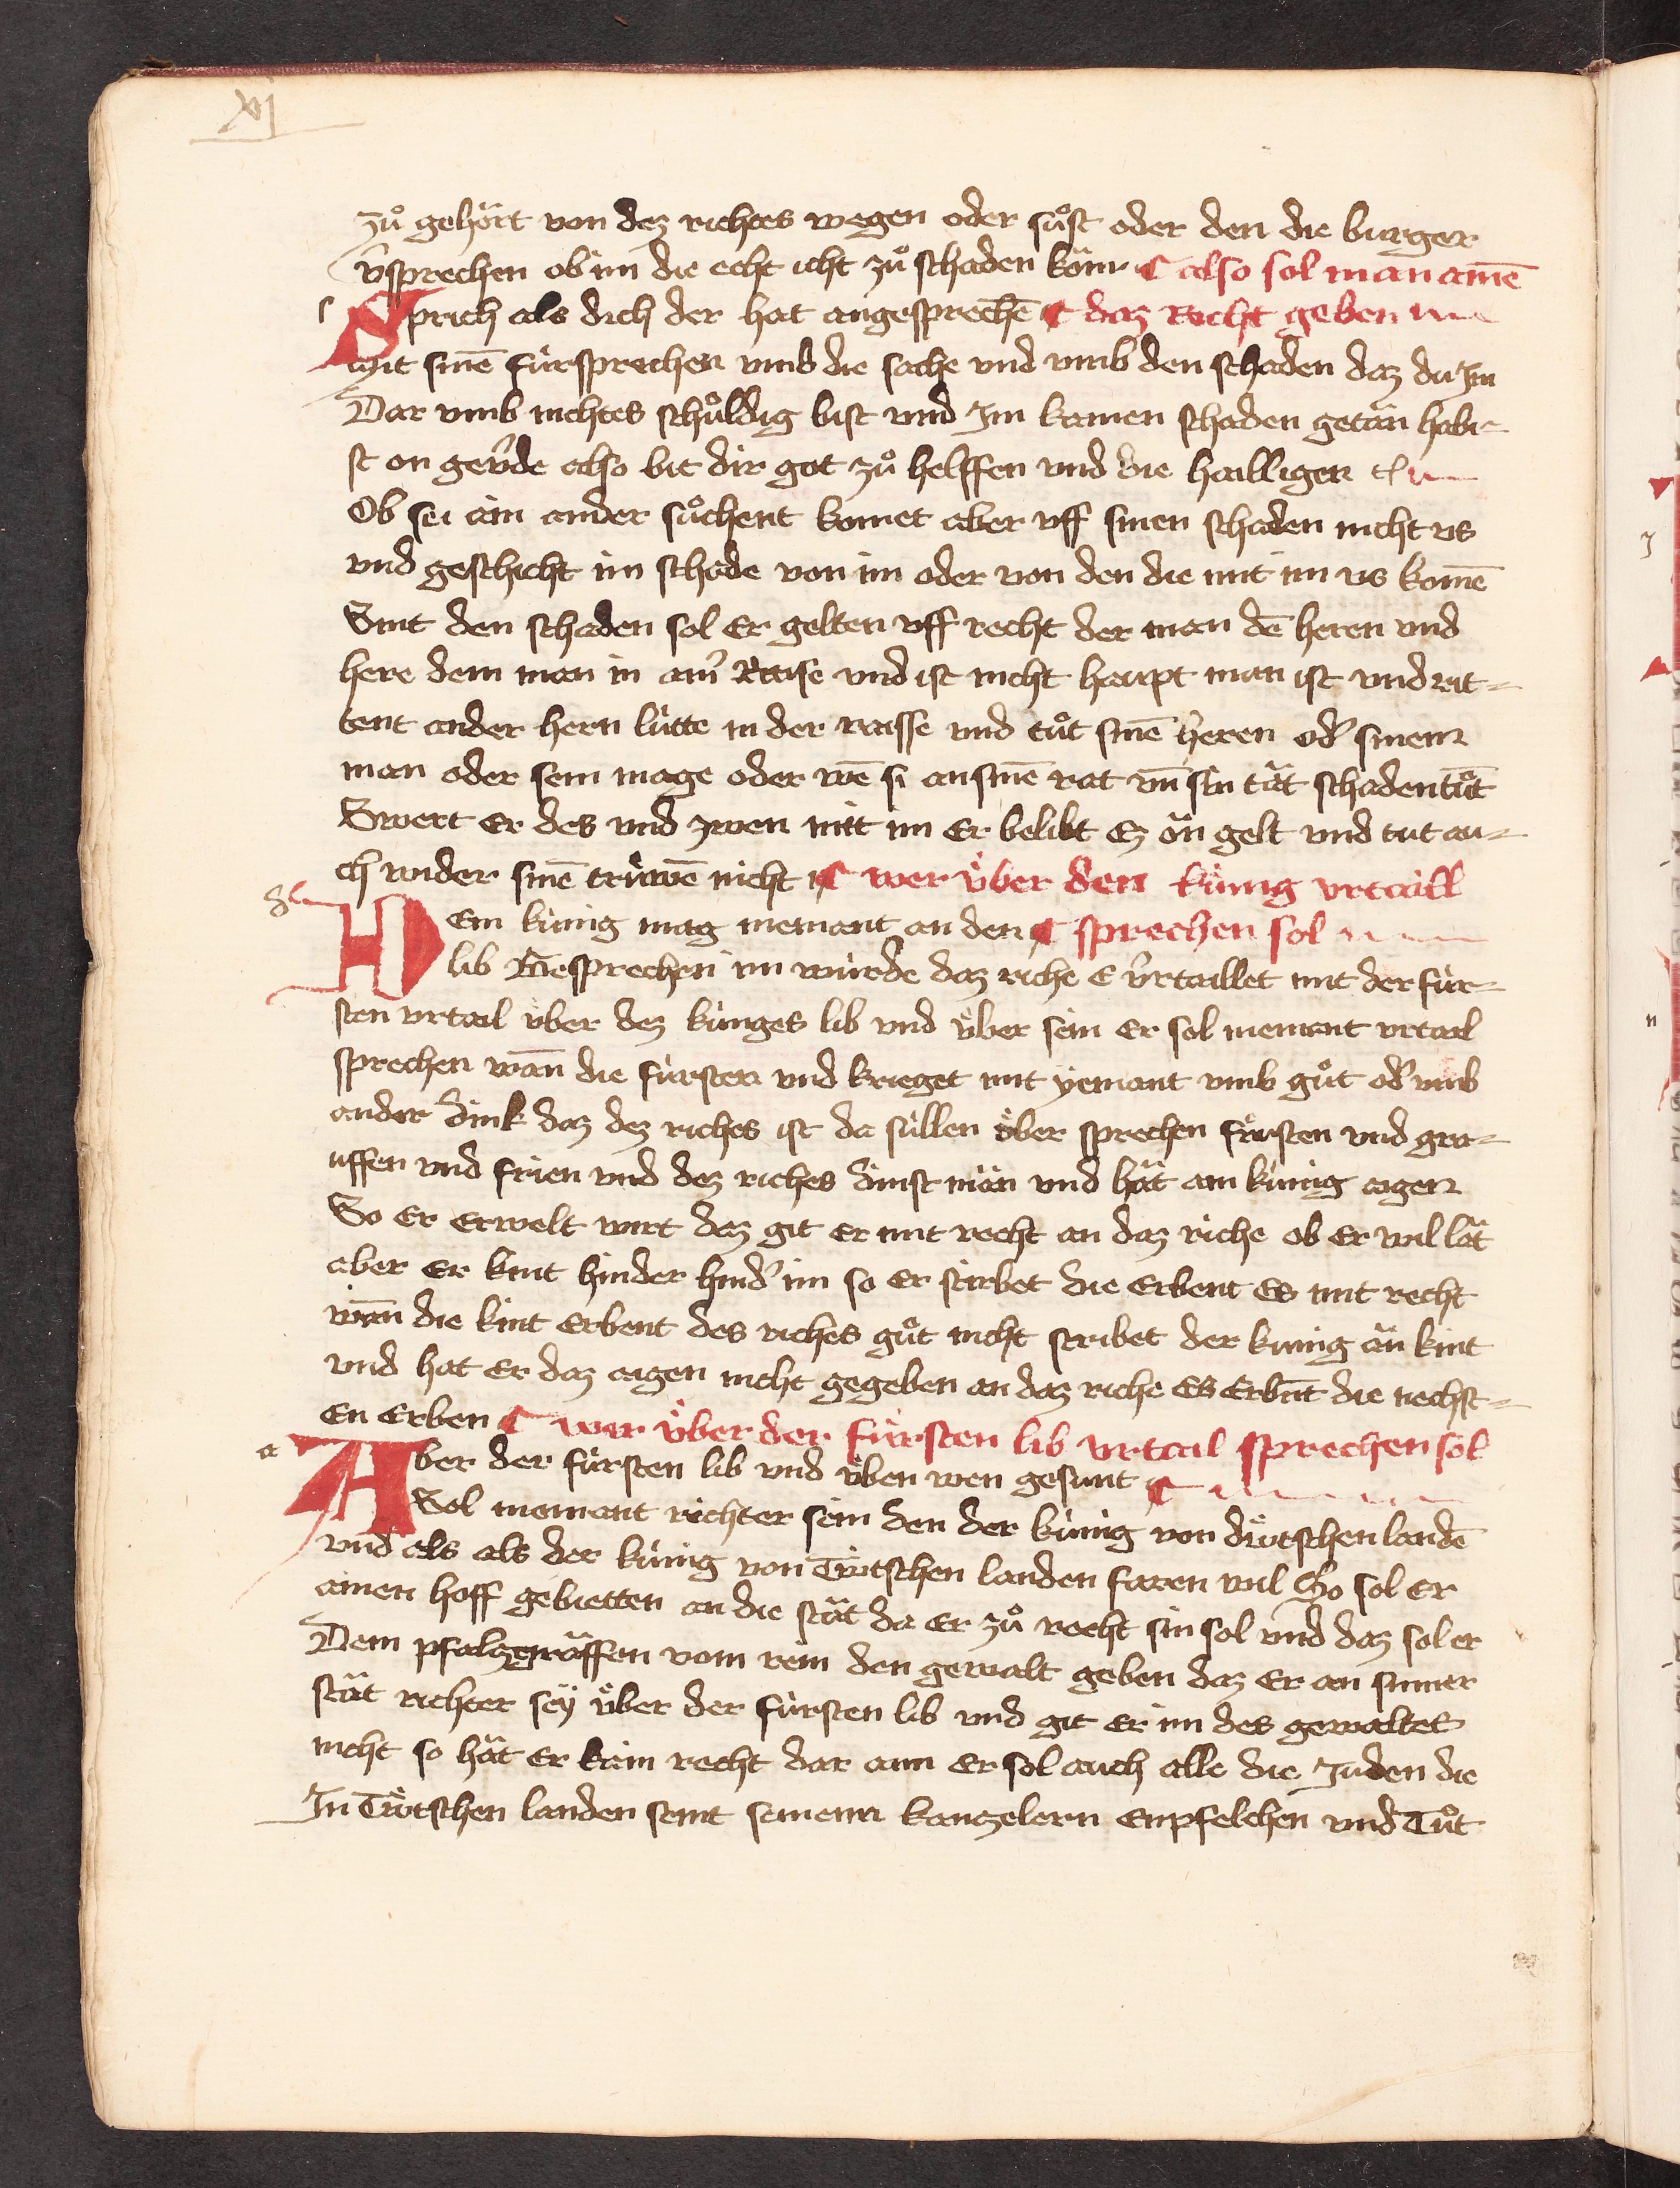 xj
zuͦ gehoͤrt von dez richtes wegen oder suͦst oder den die burger
v̾sprechen ob im die echt icht zuͦ schaden kaͤm ¶ also sol man aine͂
s Sprich als dich der hat angespreche͂ ¶ daz Recht geben
Mit sine͂ fuͤrsprechen vmb die sache vnd vmb den schaden daz du Im
Dar vmb nichtes schuͦldig bist vnd Im kainen schaden getaͤn habi-
st on geu̾de also bit dir got zuͦ helffen vnd die hailligen
Ob sei ain ander suͦchent komet aber vff sinen schaden nicht vs
vnd geschicht im schade von im oder von den die mit im vs kome͂
Sint den schaden sol Er gelten vff recht der man de͂ heren vnd
here dem man in ain̾ Raise vnd ist nicht haupt man ist vnd rit=
tent ander hern luͤtte in der raisse vnd tuͦt sine͂ heren od̾ sinem
man oder sem mage oder we͂ si an sine͂ rat vn͂ sin taͤt schaden tuͦt
Swert Er des vnd zwen mit im Er belibt Ez aͤn gelt vnd tut au=
ch wider sine͂ truͤwe͂ nicht ¶ wer uͤber den kuͤnig vrtaill
d DEm kuͤnig mag niemant an den ¶ sprechen sol
lib Gesprechen im wuͤrde daz riche E v̾rtaillet mit der fuͤr=
sten vrtail uͤber dez kuͤnges lib vnd uͤber sein Er sol niemant vrtail
sprechen wan͂ die fuͤrsten vnd krieget mit yemant vmb guͦt od̾ vmb
ander dink daz dez riches ist da suͤllen uͤber sprechen fuͤrsten vnd gra=
uffen vnd frien vnd dez riches dinst maͤn vnd haͤt ain kuͤnig aigen
So Er Erwelt wirt daz git er mit recht an daz riche ob Er wil laͤt
aber Er kint hinder hind̾ im so Er stirbet die Erbent Es mit recht
wan͂ die kint Erbent des riches guͦt nicht stribet der kuͤnig aͤn kint
vnd hat Er daz aigen nicht gegeben an daz riche Es Erbn͂t die nechst=
En Erben ¶ wer uͤber der fuͤrsten lib vrtail sprechen sol
a Aber der fuͤrsten lib vnd uͤben wen gesunt ¶
Sol niemant richter sein den der kuͤnig von duͤtschen lande͂
vnd als als der kuͤnig von Tuͤtschen landen faren wil So sol Er
ainen hoff gebietten an die staͤt da Er zuͦ recht sin sol vnd daz sol er
Dem pfalzgraͤffen vom rein den gewalt geben daz Er an sinner
staͤt richter seÿ uͤber der fuͤrsten lib vnd git Er im des gewaltes
nicht so haͤt Er kain recht dar ann Er sol auch alle die Juden die
In Tuͤtschen landen seint seinenn kanzelern Enpfelchen vnd Tuͦt